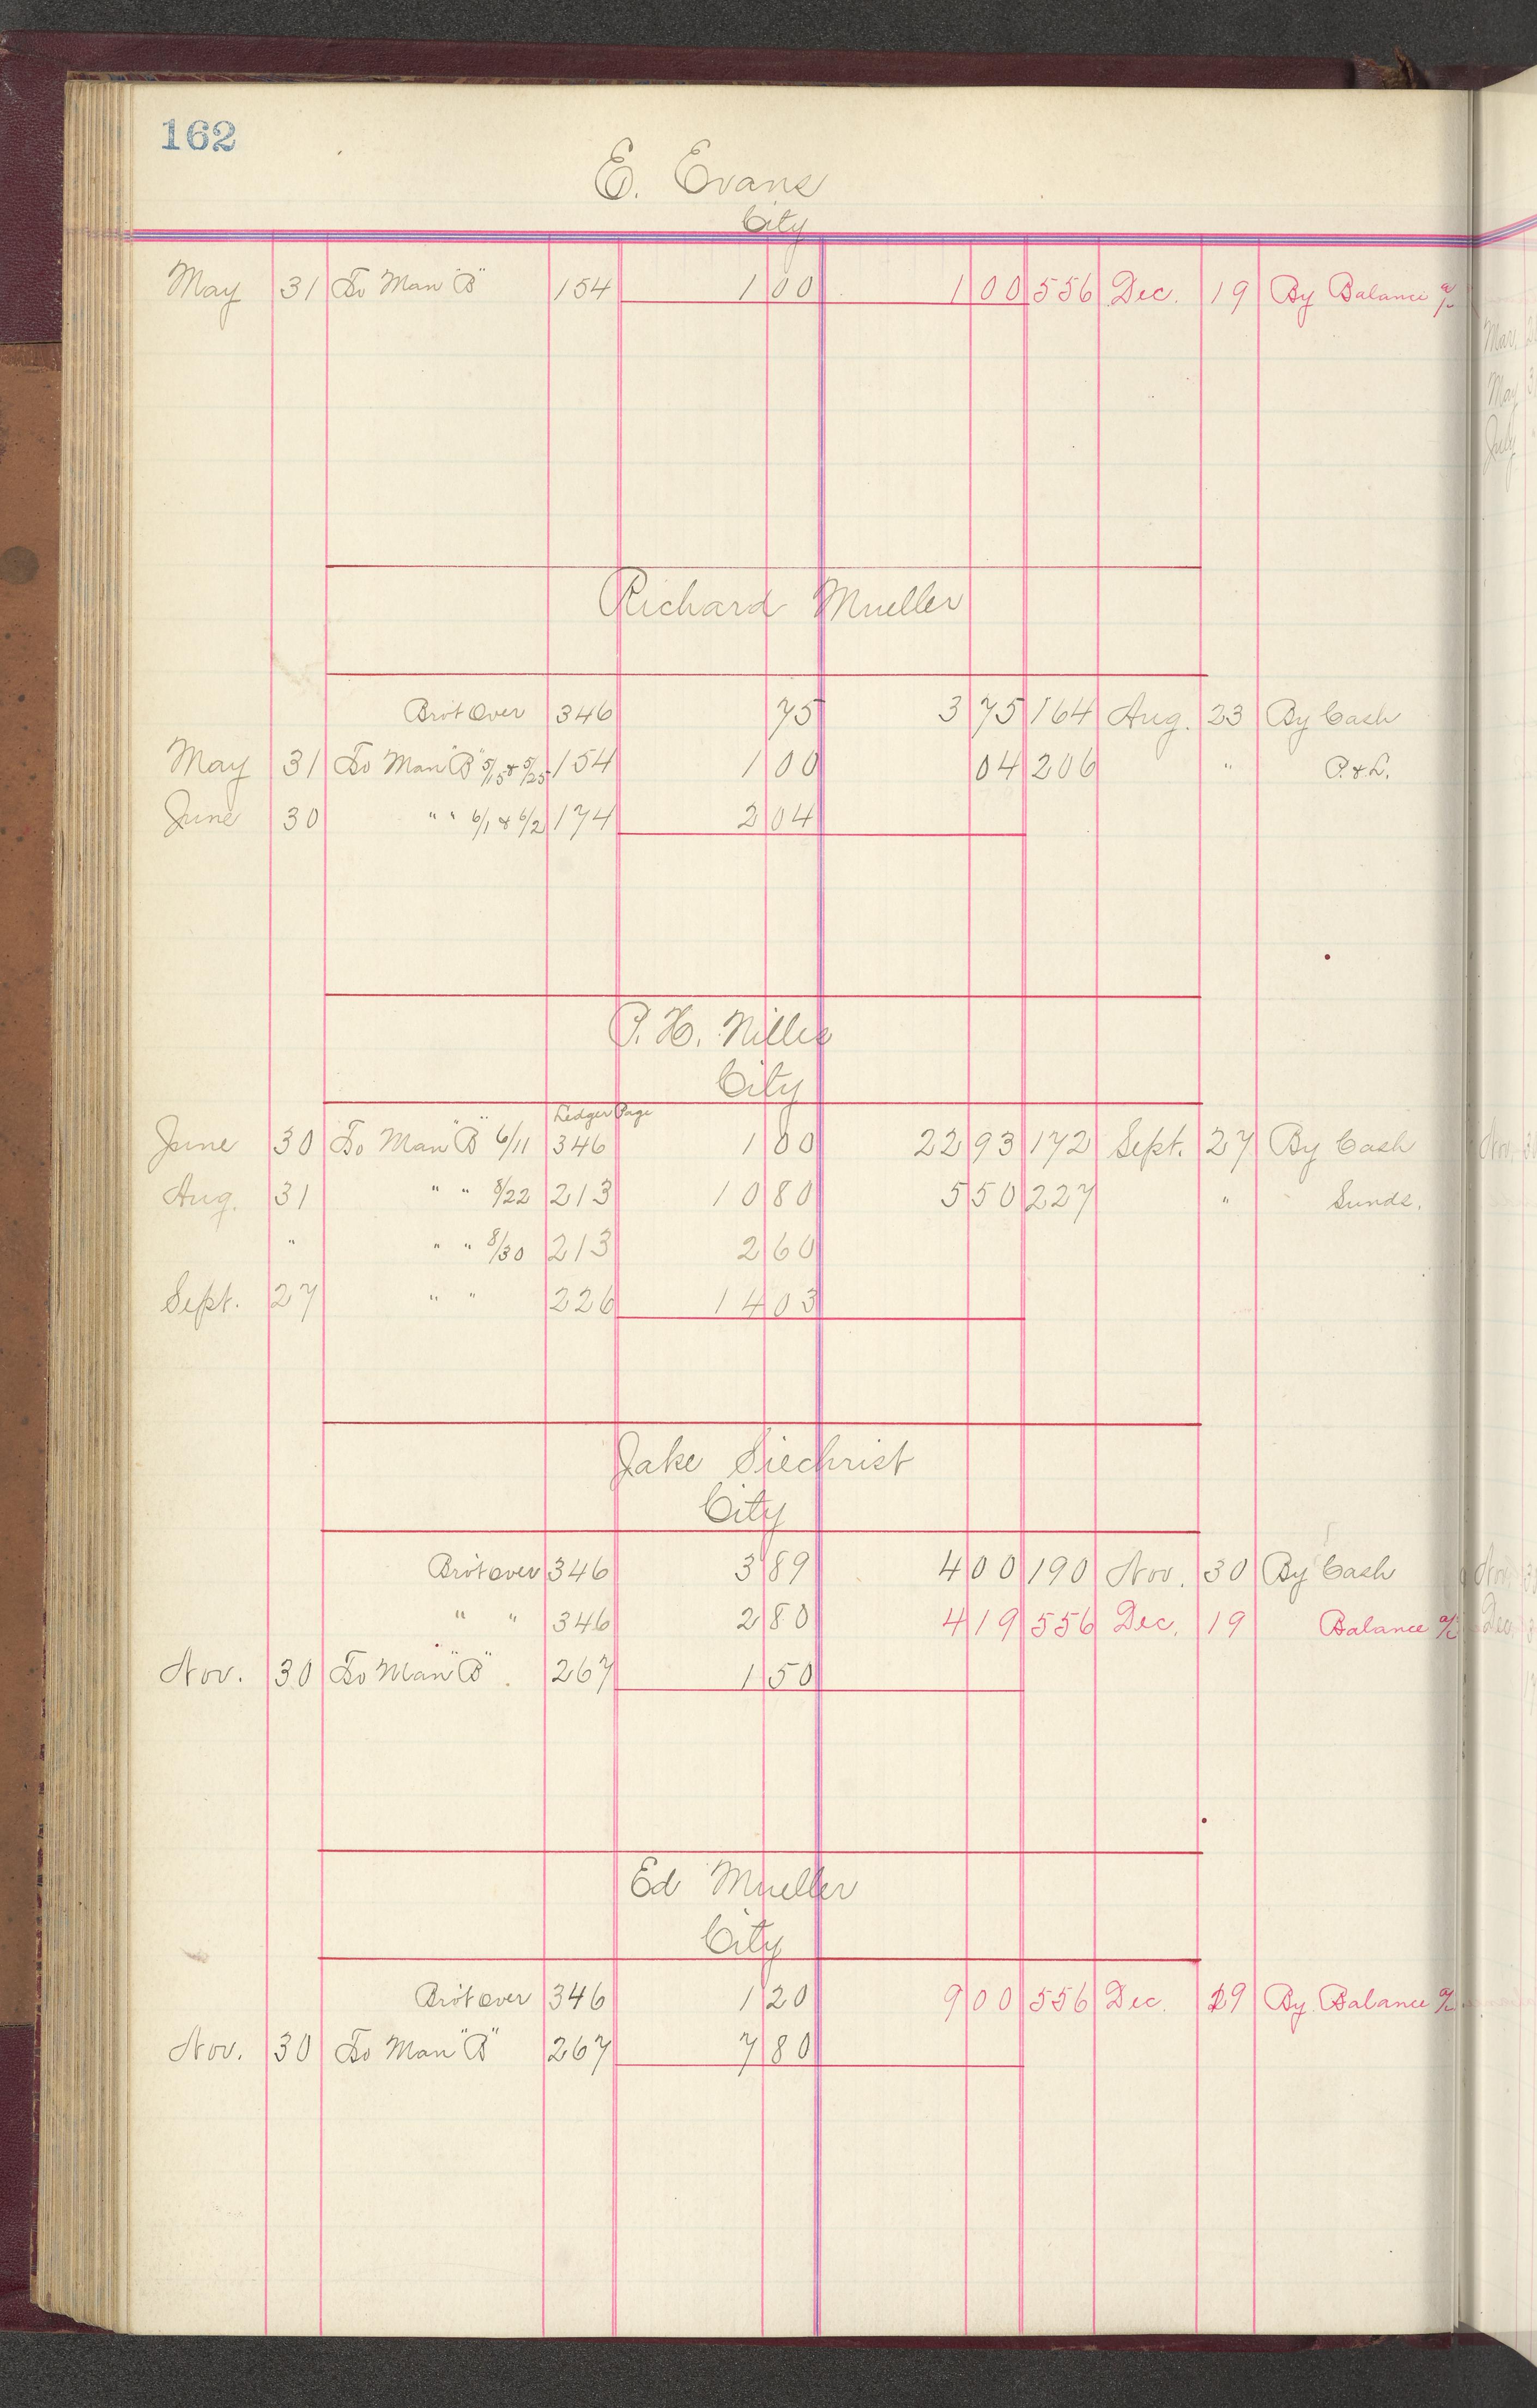 162
E. Evans
City
May 31 To Man "B" 154 1 00 1 00 556 Dec. 19 By Balance a/c
Richard Mueller
Bro't Over 346 75 3 75 164 Aug. 23 By Cash
May 31 To Man "B" 5/15 & 5/25 154 1 00 04 206 " P. & L.
June 30 " " 6/1 & 6/2 174 2 04
P. H. Nilles
City
Ledger Page
June 30 To Man "B" 6/11 346 1 00 22 93 172 Sept. 27 By Cash
Aug. 31 " " 8/22 213 10 80 5 50 227 " Sunds.
" " " 8/30 213 2 60
Sept. 27 " " 226 14 03
Jake Siechrist
City
Bro't over 346 3 89 4 00 190 Nov. 30 By Cash
" " 346 2 80 4 19 556 Dec. 19 Balance a/c
Nov. 30 To Man "B" 267 1 50
Ed Mueller
City
Bro't over 346 1 20 9 00 556 Dec. 19 By Balance a/c
Nov. 30 To Man "B" 267 7 80
Mar.
May
July
Nov.
Nov.
Dec.